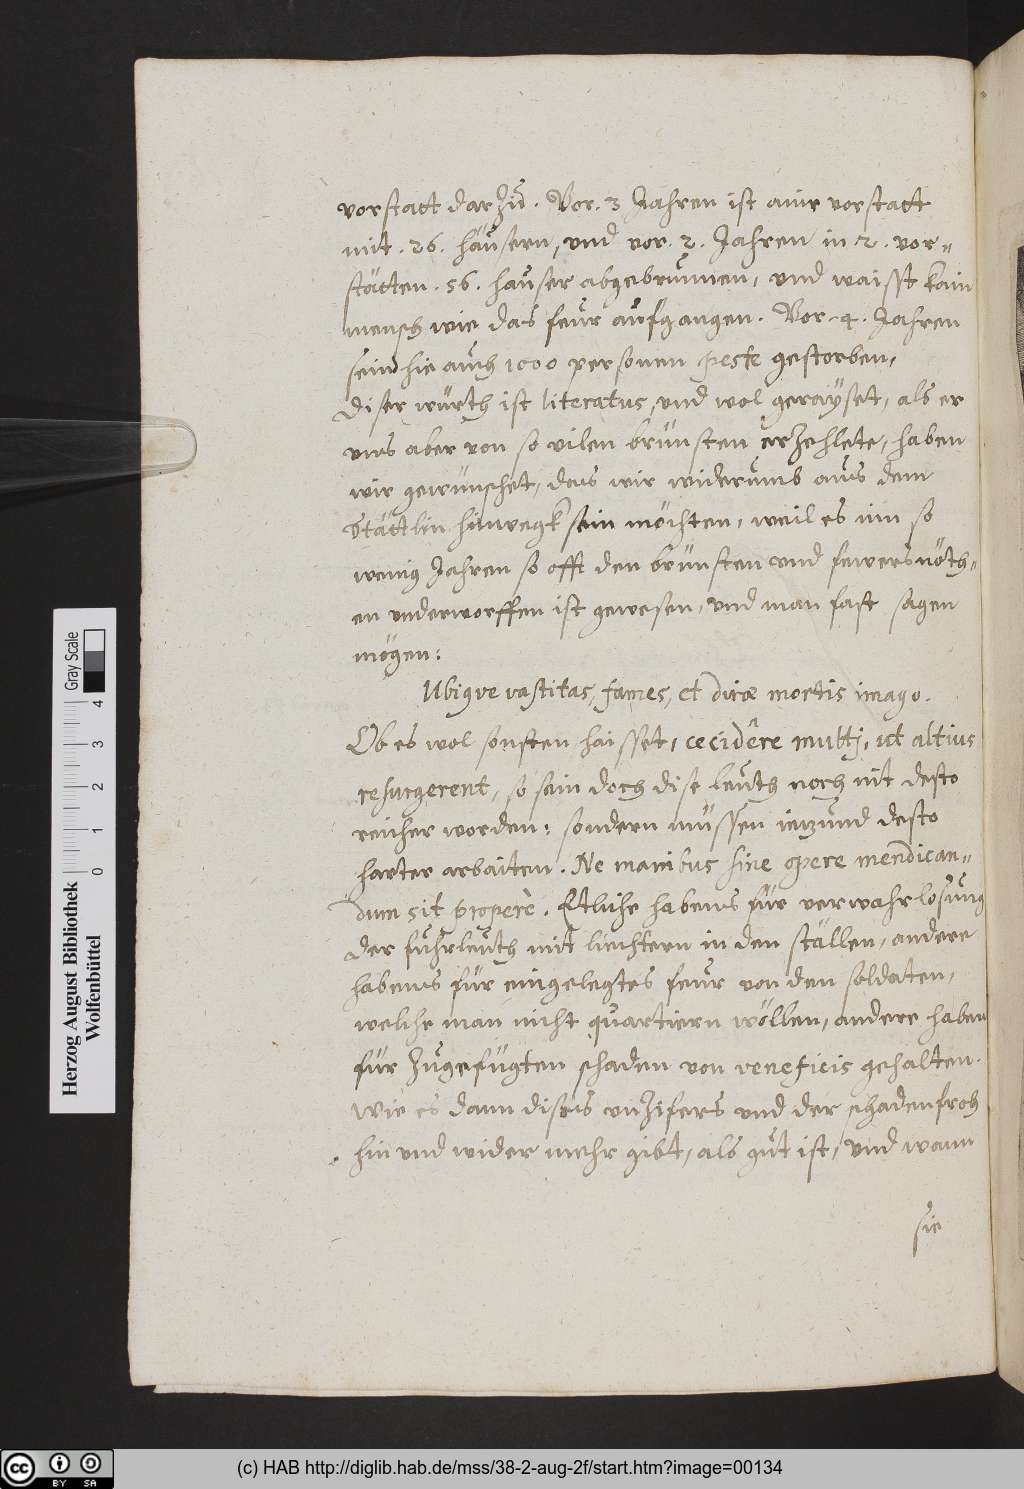 vorstatt darzů. Vor. 3 Jahren ist ainr vorstatt
mit. 26. häusern, und vor. 2. Jahren in 2. vor-
stätten. 56. hauser abgebrunnen, und waisst kain
mensch wie das feur aufgangen. Vor. 4. Jahren
sein hie auch 1000 personen peste gestorben,
diser würth ist literatus, und wol gerayset, als er
uns aber von so vilen brünsten erzehlete, haben
wir gewünschet, das wir widerumb aus dem
Stättlin hinwegk sein möchten, weil es inn so
wenig Jahren so offt den brünsten und fewersnöth-
en underworffen ist gewesen, und man fast sagen
mögen:
Ubique vastitas, fames, et diræ mortis imago.
Ob es wol sonsten haisset, cecidêre multj, ut altius
resurgerent, so sein doch dise leuth noch nit desto
reicher worden: sondern müssen iezund desto
harter arbaiten. Ne manibus sine opere mendican-
dum sit properè. Etliche habens für verwahrlosung
der fuhrleuth mit liechtern in den ställen, andere
habens für eingelegtes feur von den soldaten,
welche man nicht quartiern wöllen, andere haben
für zugefügten schaden von veneficis gehalten.
Wie es dann dises unzifers und der schadenfroh
hin und wider mehr gibt, als gut ist, und wann
sie
Herzog August Bibliothek
Wolfenbüttel
0 1 2 3 4
Gray Scale
CC BY SA
(c) HAB http://diglib.hab.de/mss/38-2-aug-2f/start.htm?image=00134